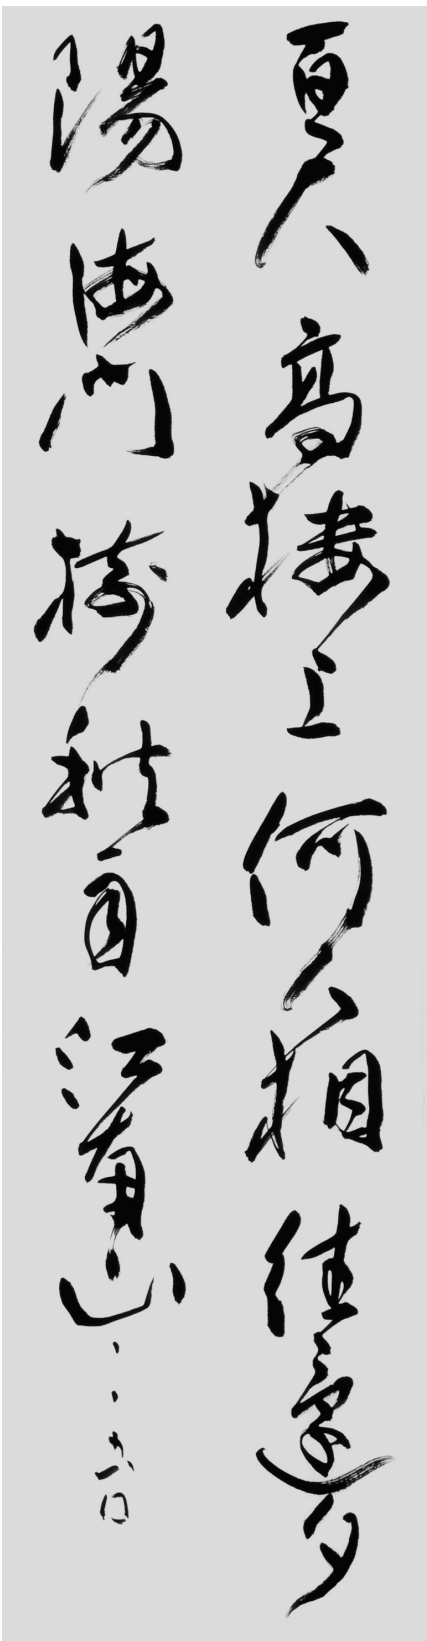 百尺高樓上何人相往還夕
陽海門樹秋江南山